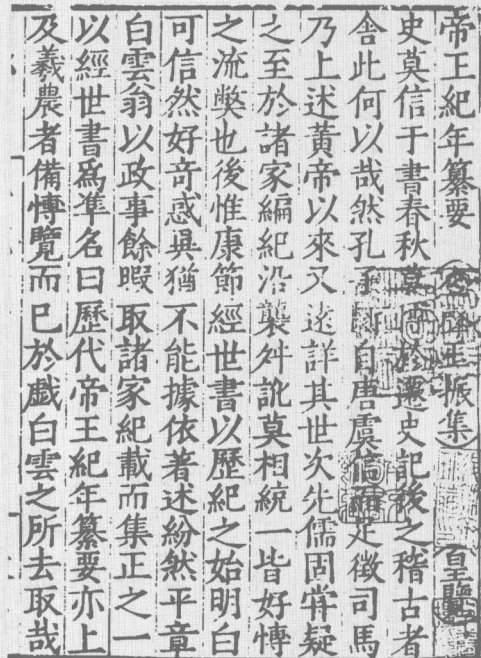 帝王紀年纂要 振集 皇
史莫信于書春秋莫 於遷史記後之稽古者
舎此何以哉然孔子 自唐虞信 足徵司馬
乃上述黃帝以來又 詳其世次先儒固甞疑
之至於諸家編紀沿襲舛訛莫相統一皆好愽
之流弊也後惟康節經世書以歷紀之始明白
可信然好竒惑異猶不能據依著述紛然平章
白雲翁以政事餘暇取諸家紀載而集正之一
以經世書爲凖名曰歷代帝王紀年纂要亦上
及羲農者備愽覽而已於戲白雲之所去取哉